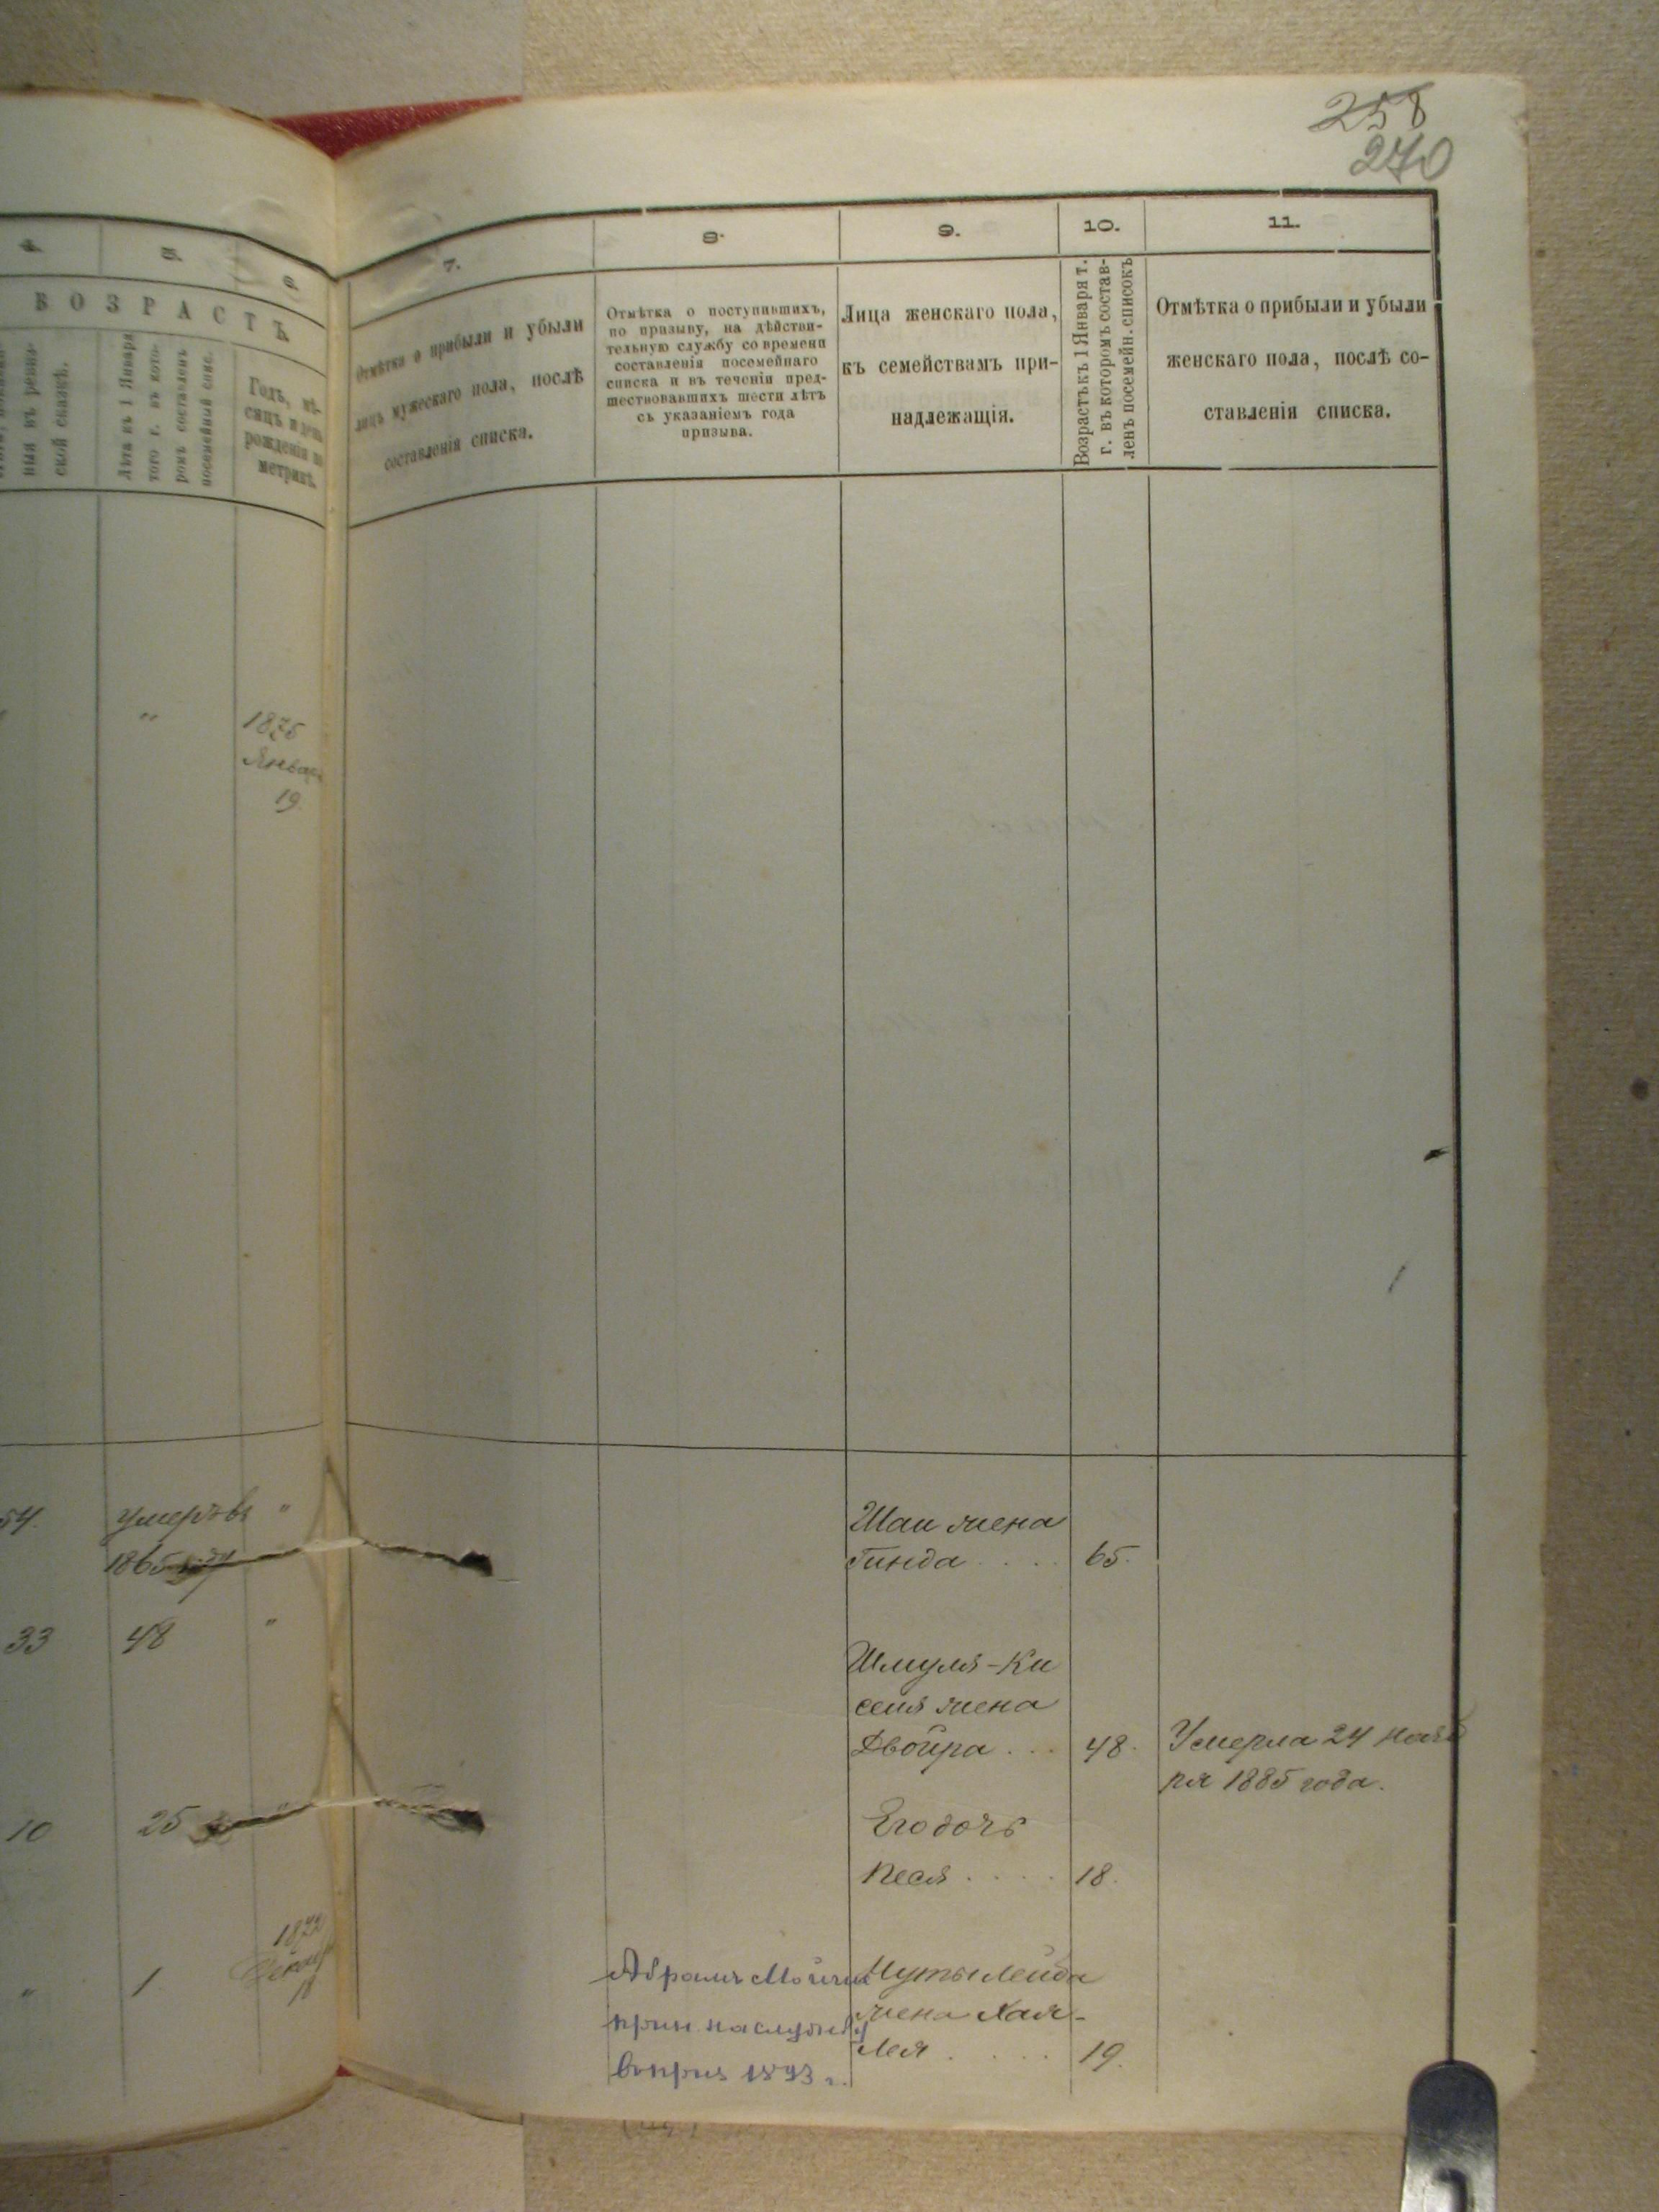 258
270
4.
5.
6.
ВОЗРАСТЪ
ныя въ ревиз-
ской сказкѣ.
Лѣта къ 1 Января
того г. въ кото-
ромъ составленъ
посемейный спис.
Годъ, мѣ-
сяцъ и день
рожденія по
метрикѣ.
7.
Отмѣтка о прибыли и убыли
лицъ мужескаго пола, послѣ
составленія списка.
8.
Отмѣтка о поступившихъ,
по призыву, на дѣйстви-
тельную службу со времени
составленія посемейнаго
списка и въ теченіи пред-
шествовавшихъ шести лѣтъ
съ указаніемъ года
призыва.
9.
Лица женскаго пола,
къ семействамъ при-
надлежащія.
10.
Возрастъ къ 1 Января т.
г. въ которомъ состав-
ленъ посемейн. списокъ
11.
Отмѣтка о прибыли и убыли
женскаго пола, послѣ со-
ставленія списка.
" 1875
Январ
19
54. умеръ въ "
1865
33 48 "
10 25 "
" 1
18
Шаи жена
Гинда . . . . 65.
Шмуля-Ки
селя жена
Двойра . . . 48. Умерла 24 нояб
ря 1885 года.
Его дочь
Песя . . . . 18.
Абрамъ
прин. на службу
1893 г.
Лейба
жена Хая-
Лея . . . . 19.